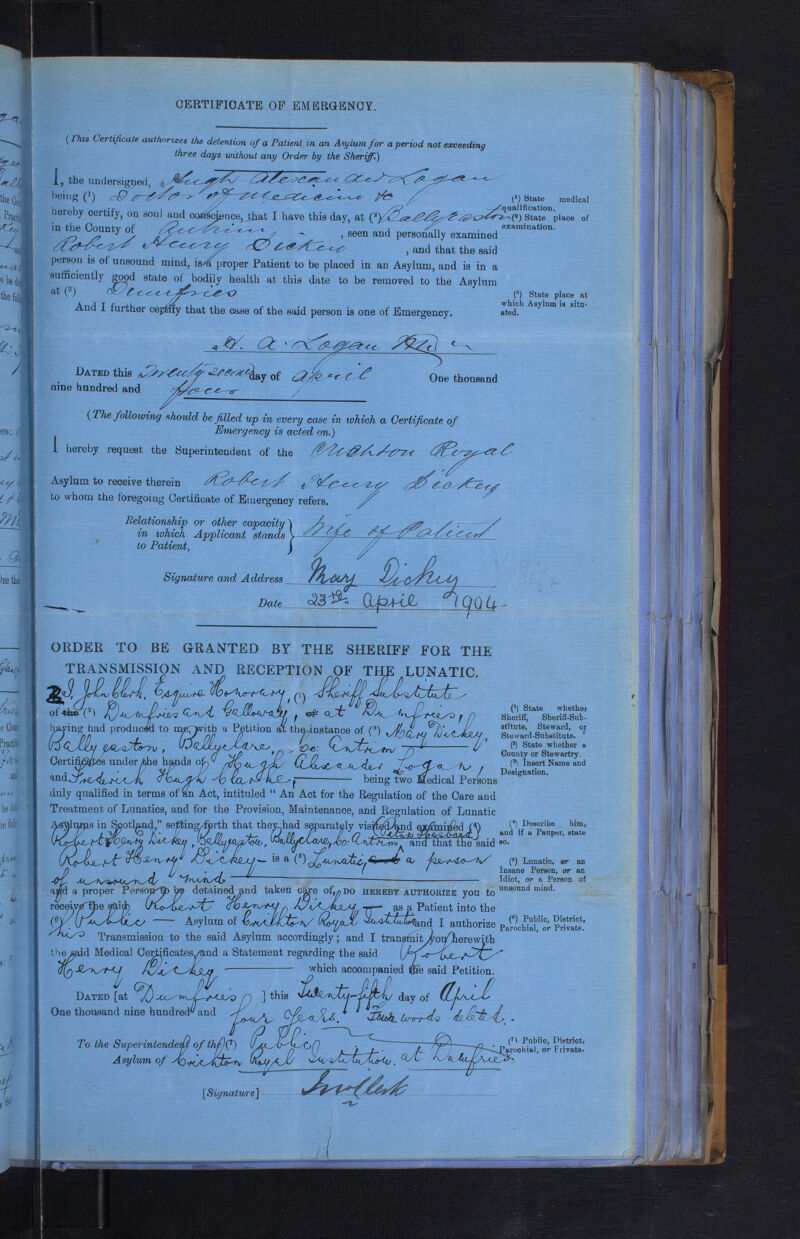 CERTIFICATE OF EMERGENCY.
(This Certificate authorizes the detention of a Patient in an Asylum for a period not exceeding
three days without any Order by the Sheriff.)
I, the undersigned, Hugh Alexander Logan
being (¹) Doctor of Medicine &c
(¹) State medical
qualification.
hereby certify, on soul and conscience, that I have this day, at (²) Ballyeaston
(²) State place of
examination.
in the County of Antrim, seen and personally examined
Robert Henry Dickey, and that the said
person is of unsound mind, is a proper Patient to be placed in an Asylum, and is in a
sufficiently good state of bodily health at this date to be removed to the Asylum
at (³) Dumfries
(³) State place at
which Asylum is situ-
ated.
And I further certify that the case of the said person is one of Emergency.
H. A. Logan M.D.
DATED this Twenty second day of April One thousand
nine hundred and four
(The following should be filled up in every case in which a Certificate of
Emergency is acted on.)
I hereby request the Superintendent of the Crichton Royal
Asylum to receive therein Robert Henry Dickey
to whom the foregoing Certificate of Emergency refers.
Relationship or other capacity
in which Applicant stands
to Patient,
Wife of Patient
Signature and Address Mary Dickey
Date 23rd. April 1904
ORDER TO BE GRANTED BY THE SHERIFF FOR THE
TRANSMISSION AND RECEPTION OF THE LUNATIC.
I, John Clerk, Esquire, Honorary, (¹) Sheriff Substitute
of the (²) Dumfries and Galloway, at Dumfries,
(¹) State whether
Sheriff, Sheriff-Sub-
stitute, Steward, or
Steward-Substitute.
having had produced to me, with a Petition at the instance of (³) Mary Dickey,
Ballyeaston, Ballyclare, Co: Antrim
(²) State whether a
County or Stewartry.
(³) Insert Name and
Designation.
Certificates under the hands of Hugh Alexander Logan,
and Frederick Hugh Clarke, being two Medical Persons
duly qualified in terms of an Act, intituled "An Act for the Regulation of the Care and
Treatment of Lunatics, and for the Provision, Maintenance, and Regulation of Lunatic
Asylums in Scotland," setting forth that they had separately visited and examined (⁴)
(⁴) Describe him,
and if a Pauper, state
so.
Robert Henry Dickey, Ballyeaston, Ballyclare, Co: Antrim, her Husband and that the said
Robert Henry Dickey is a (⁵) Lunatic, a person
of unsound mind
(⁵) Lunatic, or an
Insane Person, or an
Idiot, or a Person of
unsound mind.
and a proper Person to be detained and taken care of, DO HEREBY AUTHORIZE you to
receive the said Robert Henry Dickey as a Patient into the
(⁶) Public Asylum of Crichton Royal Institution and I authorize
(⁶) Public, District,
Parochial, or Private.
his Transmission to the said Asylum accordingly; and I transmit you herewith
the said Medical Certificates, and a Statement regarding the said Robert
Henry Dickey which accompanied the said Petition.
DATED [at Dumfries ] this Twenty-fifth day of April
One thousand nine hundred and four years. Four words deleted.
To the Superintendent of the (⁷) Public
(⁷) Public, District,
Parochial, or Private.
Asylum of Crichton Royal Institution at Dumfries
[Signature] Jno Clerk